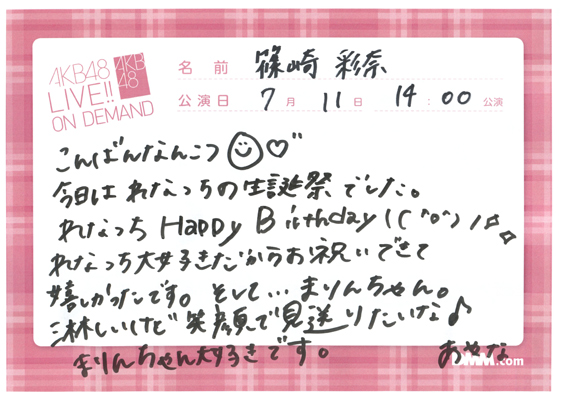 AKB48
LIVE!!
ON DEMAND
AKB
48
名 前 篠崎 彩奈
公演日 7月 11日 14:00 公演
こんばんなんこつ ♡"
今日は れなっちの生誕祭でした。
れなっち Happy Birthday \(^o^)/♪
れなっち大好きだからお祝いできて
嬉しかったです。そして… まりんちゃん。
淋しいけど 笑顔で見送りたいな♪
まりんちゃん大好きです。 あやな
DMM.com